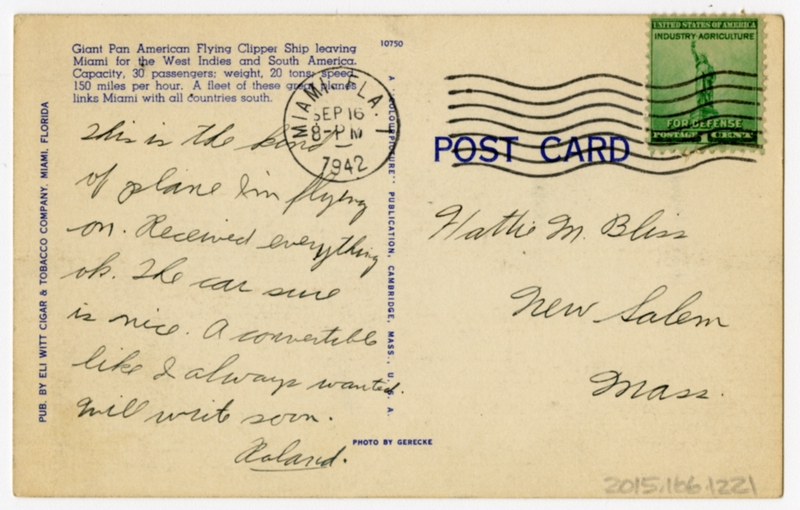 Giant Pan American Flying Clipper Ship leaving
Miami for the West Indies and South America.
Capacity, 30 passengers; weight, 20 tons; speed,
150 miles per hour. A fleet of these great planes
links Miami with all countries south.
10750
PUB. BY ELI WITT CIGAR & TOBACCO COMPANY, MIAMI, FLORIDA
This is the kind
of plane I'm flying
on. Received everything
ok. The car sure
is nice. A convertible
like I always wanted.
Will write soon.
Roland.
A "COLOURPICTURE" PUBLICATION, CAMBRIDGE, MASS., U. S. A.
PHOTO BY GERECKE
MIAMI, FLA. 1
SEP 16
8-PM
1942
UNITED STATES OF AMERICA
INDUSTRY·AGRICULTURE
FOR DEFENSE
POSTAGE 1 CENT
POST CARD
Hattie M. Bliss
New Salem
Mass.
2015.166.1221